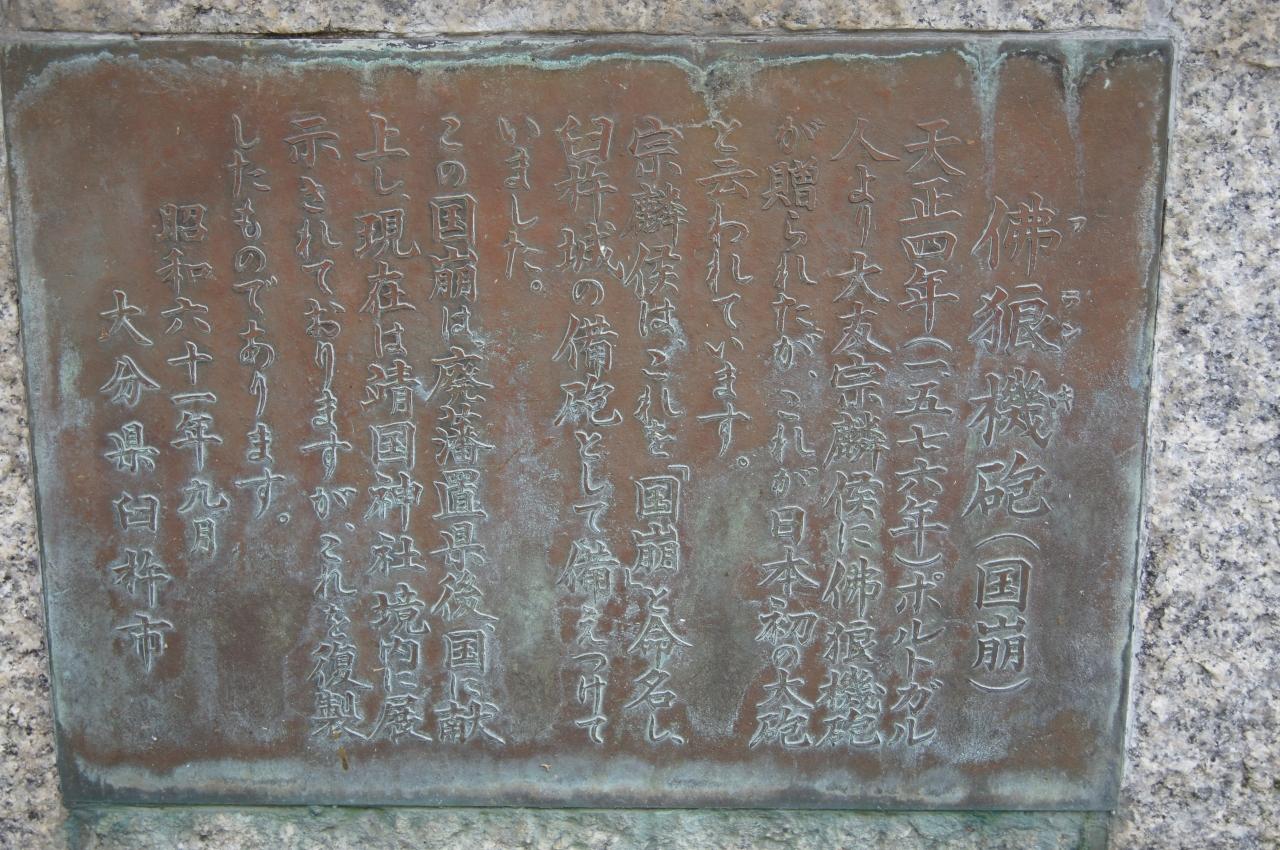 佛狼機砲(国崩)
フランキ
天正四年(一五七六年)ポルトガル
人より大友宗麟侯に佛狼機砲
が贈られたが、これが日本初の大砲
と云われています。
宗麟侯はこれを「国崩」と命名し、
臼杵城の備砲として備えつけて
いました。
この国崩は廃藩置県後国に献
上し現在は靖国神社境内に展
示されておりますが、これを復製
したものであります。
昭和六十一年九月
大分県臼杵市